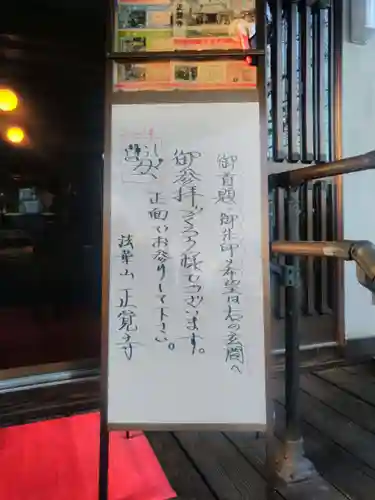 御首題、御朱印ご希望は右の玄関へ
御参拝ごくろう様でございます。
正面でお参りして下さい。
法華山 正覚寺